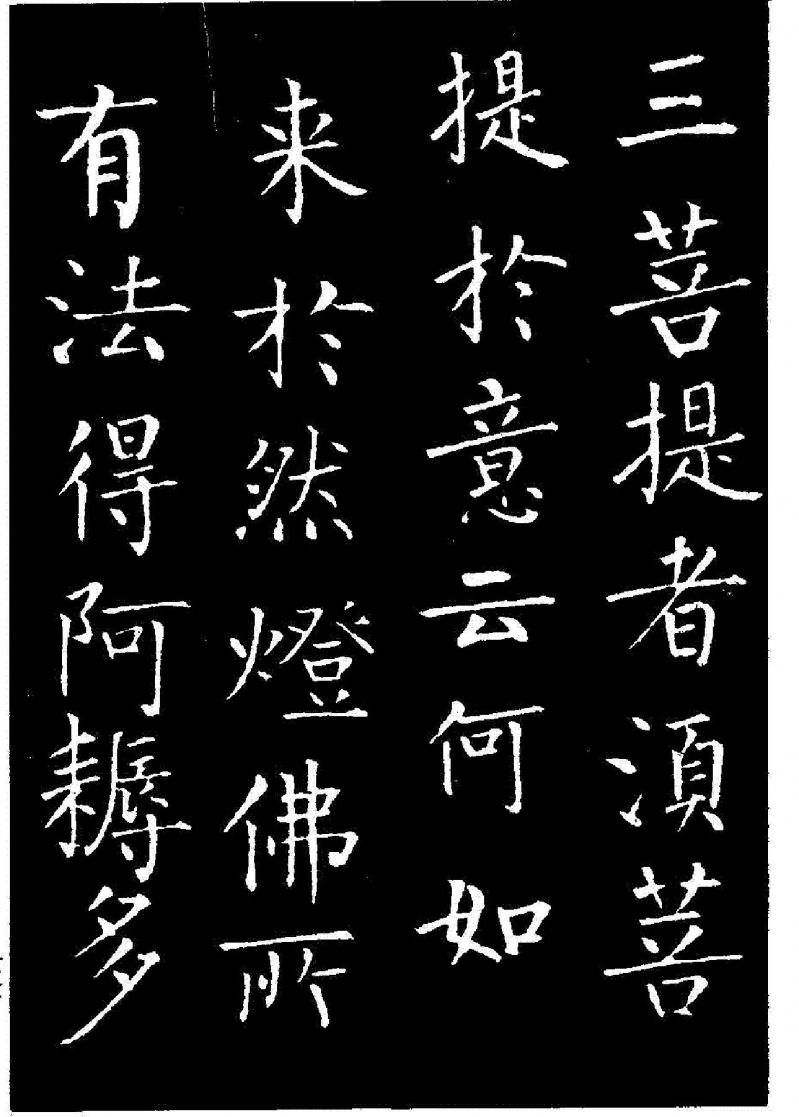 三菩提者湏菩
提於意云何如
来於然燈佛所
有法得阿耨多